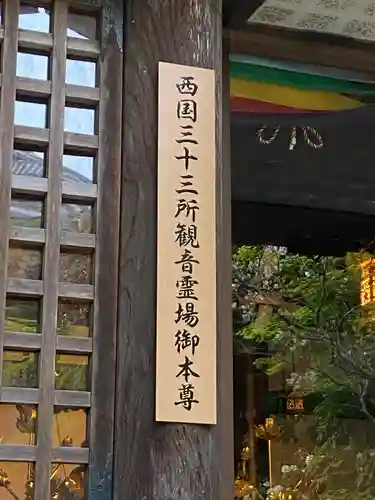 西国三十三所観音霊場御本尊